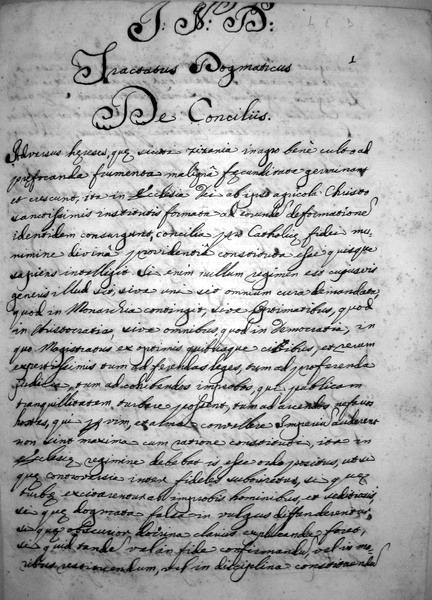 J. N. D.
1
Tractatus Dogmaticus
De Conciliis.
Adversus hęreses, quę sicut zizania in agro benè culto ad
pręfocanda frumenta malignâ fęcunditate germinant
et crescunt, ita in Ecclesia Dei ab ipso agricolâ Christo
sanctissimis institutis formata ad eiusdē deformationē
identidem consurgunt, concilia pro Catholicę fidei mu-
nimine divinâ providentiâ constituta esse quisque
sapiens intelligit. Sic enim nullum regimen est cuiusvis
generis illud sit, sive uni sit omnium cura demandata
quod in Monarchia contingit, sive Optimatibus, quod
in Aristocratia, sive omnibus quod in Democratia, in
quo Magistratus ex optimis quibusque civibus, et rerum
expertissimis tum ad ferendas leges, tum ad proferenda
iudicia, tum ad cohibendos improbos, qui publicam
tranquillitatem turbare possent, tum ad arcendos
hostes, qui per vim, convellere Imperiū auderent
non sint maxima cum ratione constituti, ita in
Ecclesię regimine debebat is esse ordo positus, ut si
quę controversię inter fideles suborirentur, si quę
turbę excitarentur ab improbis hominibus, et seditiosis,
si quę dogmata falsa in vulgus diffunderentur,
si quę obscurior doctrina clarius explicanda foret,
si quid tandē vel in fide confirmandū, vel in mo-
ribus restituendum, vel in disciplina constituendū